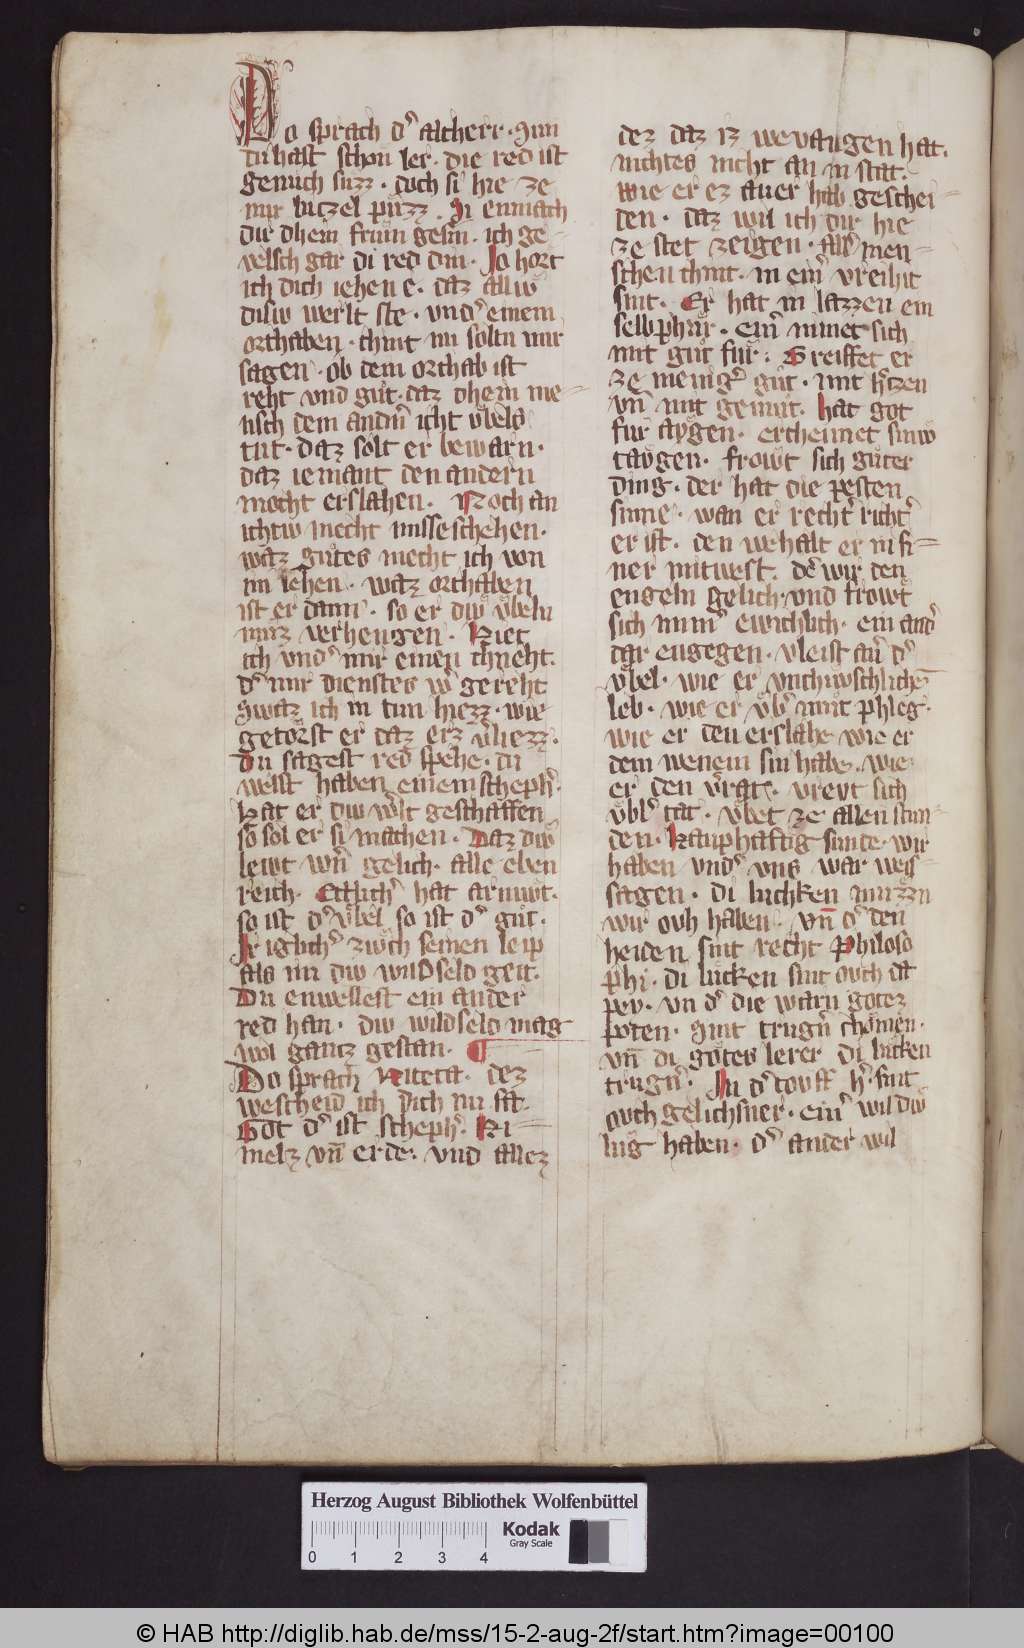 Do sprach d᾽ altherr · Nun
du hast schon ler · die red ist
genuch suzz · doch si hie ze
mir lutzel puzz · Si enmach
dir dhein frum gesin · ich ge-
velsch gar di red din · Jo hort
ich dich iehen e · daz alliw
disiw werlt ste · vnd᾽ einem
orthaben · chint nu soltu mir
sagen · ob dem orthab ist
reht vnd gůt · daz dhein me-
nsch dem andñ icht vbels
tůt · daz solt er bewarn ·
daz iemant den andern
mocht erslahen · Noch an
ichtiw mecht misseschehen ·
waz gůtes mecht ich von
im iehen · waz orthaben
ist er dann · so er diw vbeln
můz verhengen · Riet
ich vnd᾽ mir einen chneht ·
d᾽ mir dienstes w᾽ gereht
Swaz ich in tun hiezz · wie
getorst er daz erz v᾽liezz ·
Du sagest red spehe · du
welst haben einem scheph᾽ ·
Hat er diw w᾽lt geschaffen
so sol er si machen · Daz diw
lewt wñ gelich · alle eben
reich · Etlich᾽ hat armut ·
so ist d᾽ vbel so ist d᾽ gůt ·
Ir iglich᾽ zivch seinen leip
als im diw wildseld geit ·
Du enwellest ein ander
red han · diw wildseld mag
wol gantz gestan · ¶
Do sprach Niteta · dez
wescheid ich dich nu sa ·
Got d᾽ ist scheph᾽ · Hi-
melz vñ erde · vnd allez
dez daz iz wevangen hat ·
nichtes nicht an in stat ·
wie er ez aver hab geschei-
den · daz wil ich dir hie
ze stet zeigen · Alle men-
schen chint · in ein᾽ vreihit
sint · Er hat in lazzen ein
selbphar · ein᾽ nimet sich
mit gůt fůr · Greiffet er
ze menig᾽ gůt · mit h᾽tzen
vñ mit gemůt · hat got
fur aygen · erchennet siniw
taugen · frowt sich gůter
ding · der hat die pesten
sinne · wan er recht᾽ richt᾽
er ist · den wehalt er in si-
ner mitwest · d᾽ wir den
engeln gelich vnd frowt
sich nim᾽ ewichlich · ein and᾽
dar engegen · vleist an᾽ d᾽
vbel · wie er vnchivschlichē
leb · wie er vb᾽ můt phleg ·
wie er den erslahe wie er
dem wenem sin habe · wie
er den v᾽rat · vrevt sich
vbl᾽ tat · vbet ze allen stun-
den · Hauphaftig sunde · wir
haben vnd᾽ vns war weis-
sagen · di lucken můzzn
wir ovh haben · vñ d᾽ den
heiden sint recht Philoso
phi · di lucken sint ovch da
pey · vn d᾽ die warn gotez
poten · Sint trugn᾽ chomen ·
vñ di gotes lerer di lucken
trugn᾽ · In d᾽ touff h᾽ sint
ovch gelichsner · ein᾽ wil diw
lug haben · d᾽ ander wil
Herzog August Bibliothek Wolfenbüttel
0 1 2 3 4
Kodak
Gray Scale
© HAB http://diglib.hab.de/mss/15-2-aug-2f/start.htm?image=00100